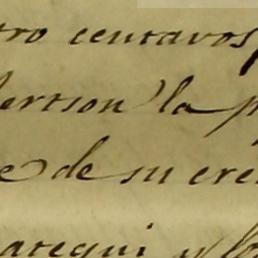 tro centavos
bertson la p
e de su cre
aregui y lo